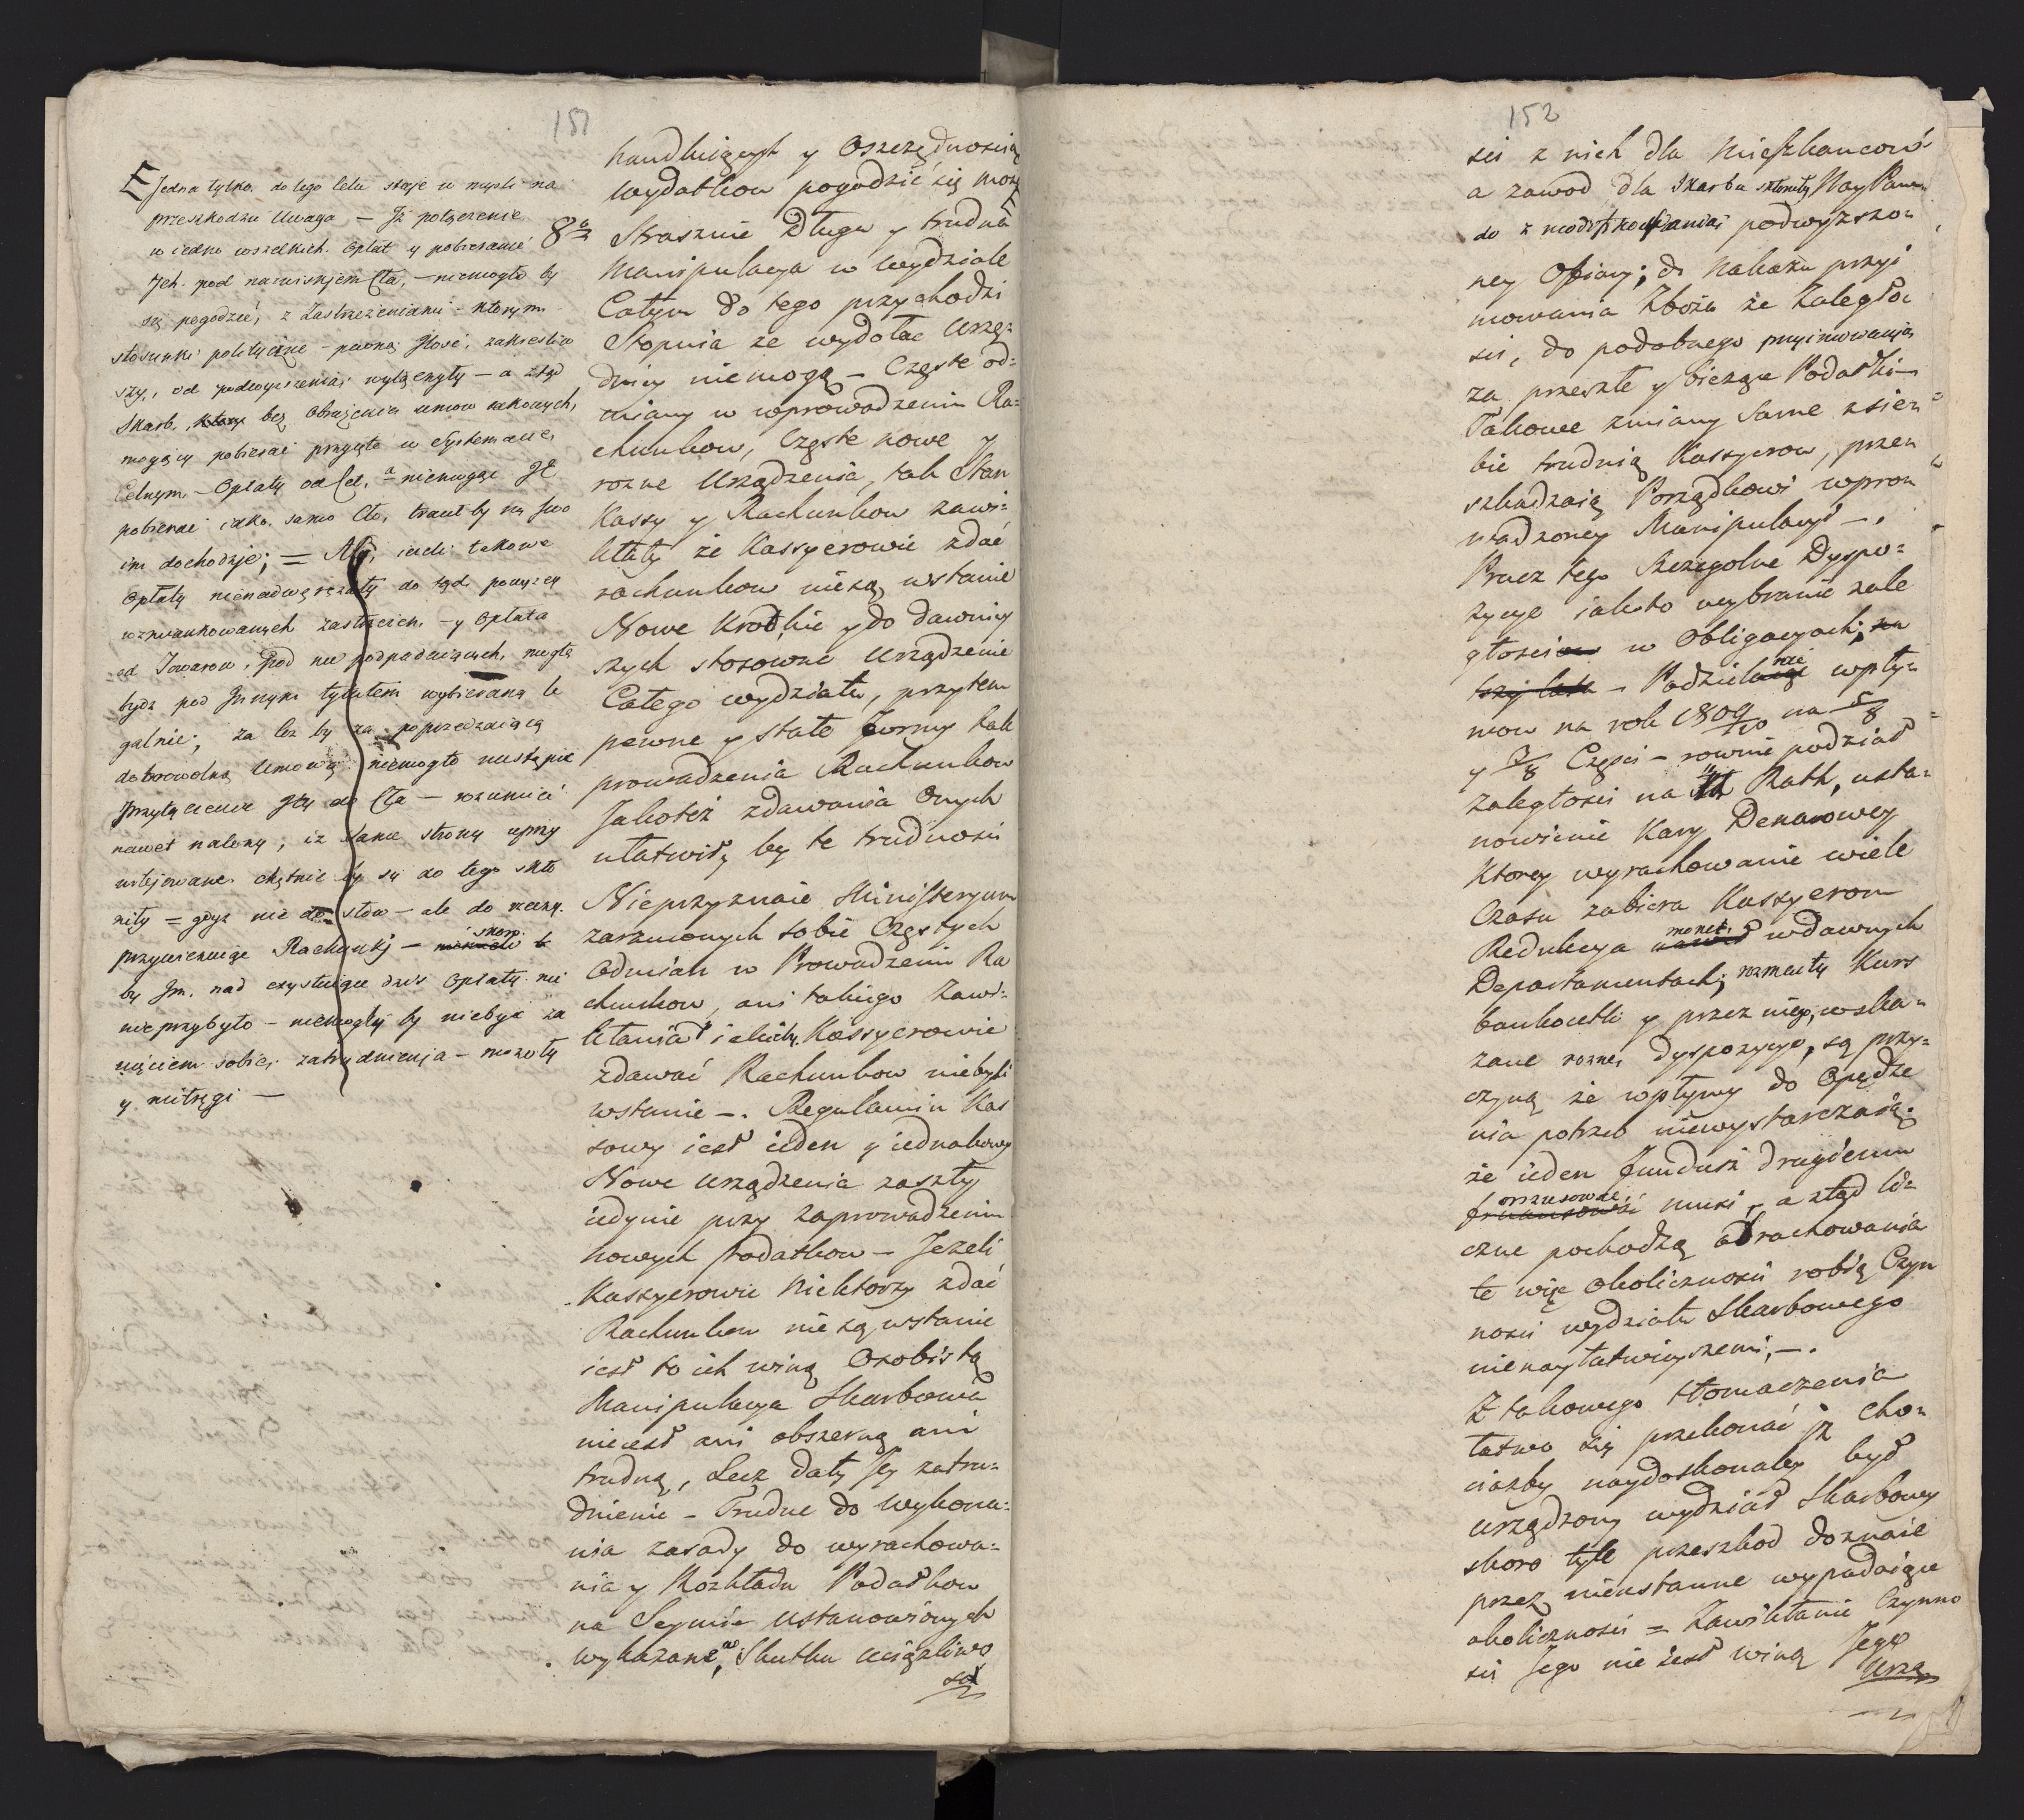 151
E Jedna tylko do tego celu staje w myśli na
przeszkodzie Uwaga — Iż połączenie
w iedno wszelkich Opłat y pobieranie
Jch pod nazwiskiem Cła, — niemogło by
się pogodzić, z Zastrzeżeniami — ktorym
stosunki polityczne — pewną Jlość, zakreśliw
szy, od podwyższenia wyłączyły — a ztąd
Skarb, ktory bez Obrażenia umow takowych,
mogący pobierać przyięte w Systemacie
Celnym — Opłaty od Cel, a niemogąc JE
pobierać iako samo Cło, tracił by na Swo
im dochodzie; = Ale, ieżeli takowe
Opłaty nienadwerężały do tąd powyżey
wzmiankowanych zastrzeżen — y Opłata
od Towarow, Pod nie podpadaiących, mogła
bydz pod Jnnym tytułem wybieraną le
galnie; za lez by za poprzedzaiącą
dobrowolną Umową niemogło nastąpić
Przyłączenie Jey do Cła — rozumieć
nawet należy, iż same strony uprzy
wilejowane chętnie by się do tego skło
niły = gdyż nie do słow — ale do rzeczy
przywiązując Rachunki — skoro
by Jm, nad exystuiące dziś Opłaty nic
nie przybyło — niemogły by niebyć za
ięciem sobie, zatrudnienia — mozoły
y mitręgi —
handluiących y Oszczędnością
wydatkow pogodzić się może E
8o Strasznie Długa y trudna
Manipulacya w Wydziale
Całym do tego przychodzi
Stopnia że wydołac Urzę-
dnicy niemogą — Częste od-
miany w wprowadzeniu Ra-
chunkow, Częste nowe y
rozne Urządzenia, tak Stan
Kassy y Rachunkow zawi-
kłały że Kassyerowie zdać
rachunkow niesą wstanie
Nowe Krotkie y do dawniey
szych stosowne Urządzenie
Całego wydziału, przytem
pewne y stałe Formy tak
prowadzenia Rachunkow
Jakoteż zdawania Onych
ułatwiły by te trudności
Nieprzyznaie Ministeryum
zarzuconych sobie Częstych
Odmian w Prowadzeniu Ra
chunkow, ani takiego Zawi-
kłania iakieby Kassyerowie
zdawać Rachunkow niebyli
wstanie —. Regulamin Kas
sowy iest ieden y iednakowy
Nowe Urządzenia zaszły
iedynie przy zaprowadzeniu
nowych Podatkow — Jeżeli
Kassyerowie niektorzy zdać
Rachunkow nie są wstanie
iest to ich winą Osobistą
Manipulacya Skarbowa
nieiest ani obszerną ani
trudną, Lecz dały Jey zatru-
dnienie — Trudne do wykona-
nia zasady do wyrachowa-
nia y Rozkładu Podatkow
na Seymie Ustanowionych
wykazane, Skutku uciążliwo
sci
152
sci z nich dla Mieszkancow
a zawod dla Skarbu skłoniły Nay Pana
do z modyfikowania podwyzszo-
ney Ofiary; do Nakazu przyi
mowania Zboża za Zaległo
sci, do podobnego przyimowania
za przeszłe y bieżące Podatki —
Takowe zmiany Same zsie-
bie trudnią Kassyerow, prze-
szkadzaią Porządkowi wpro-
wadzoney Manipulacyi —.
Precz tego Szczegolne Dyspo-
zycye iakoto wybranie zale
głosci w Obligacyach;
— Podzielenie wpły-
wow na rok 1809/10 na 5/8
y 3/8 Części — rownie podział
zaległosci na Rath, usta-
nowienie Kary Denarowey
Ktorey wyrachowanie wiele
Czasu zabiera Kassyerom
Redukcya monet wdawnych
Departamentach; rozmaity Kurs
bankocetli y przez niego, wska-
zane rozne dyspozycye, są przy-
czyną że wpływy do Opędze
nia potrzeb niewystarczaią
że ieden fundusz drugiemu
musi, — a ztąd li-
czne pochodzą obrachowania
te więc okoliczności robią Czyn
ności wydziału Skarbowego
nienayłatwieyszemi, —.
Z takowego tłomaczenia
łatwo się przekonać iż cho-
ciażby naydoskonaley był
urządzony wydział Skarbowy
skoro tyle przeszkod doznaie
przez nieustanne wypadaiące
okoliczności = Zawikłanie Czynno
sci Jego nie iest winą Jego
Urzę